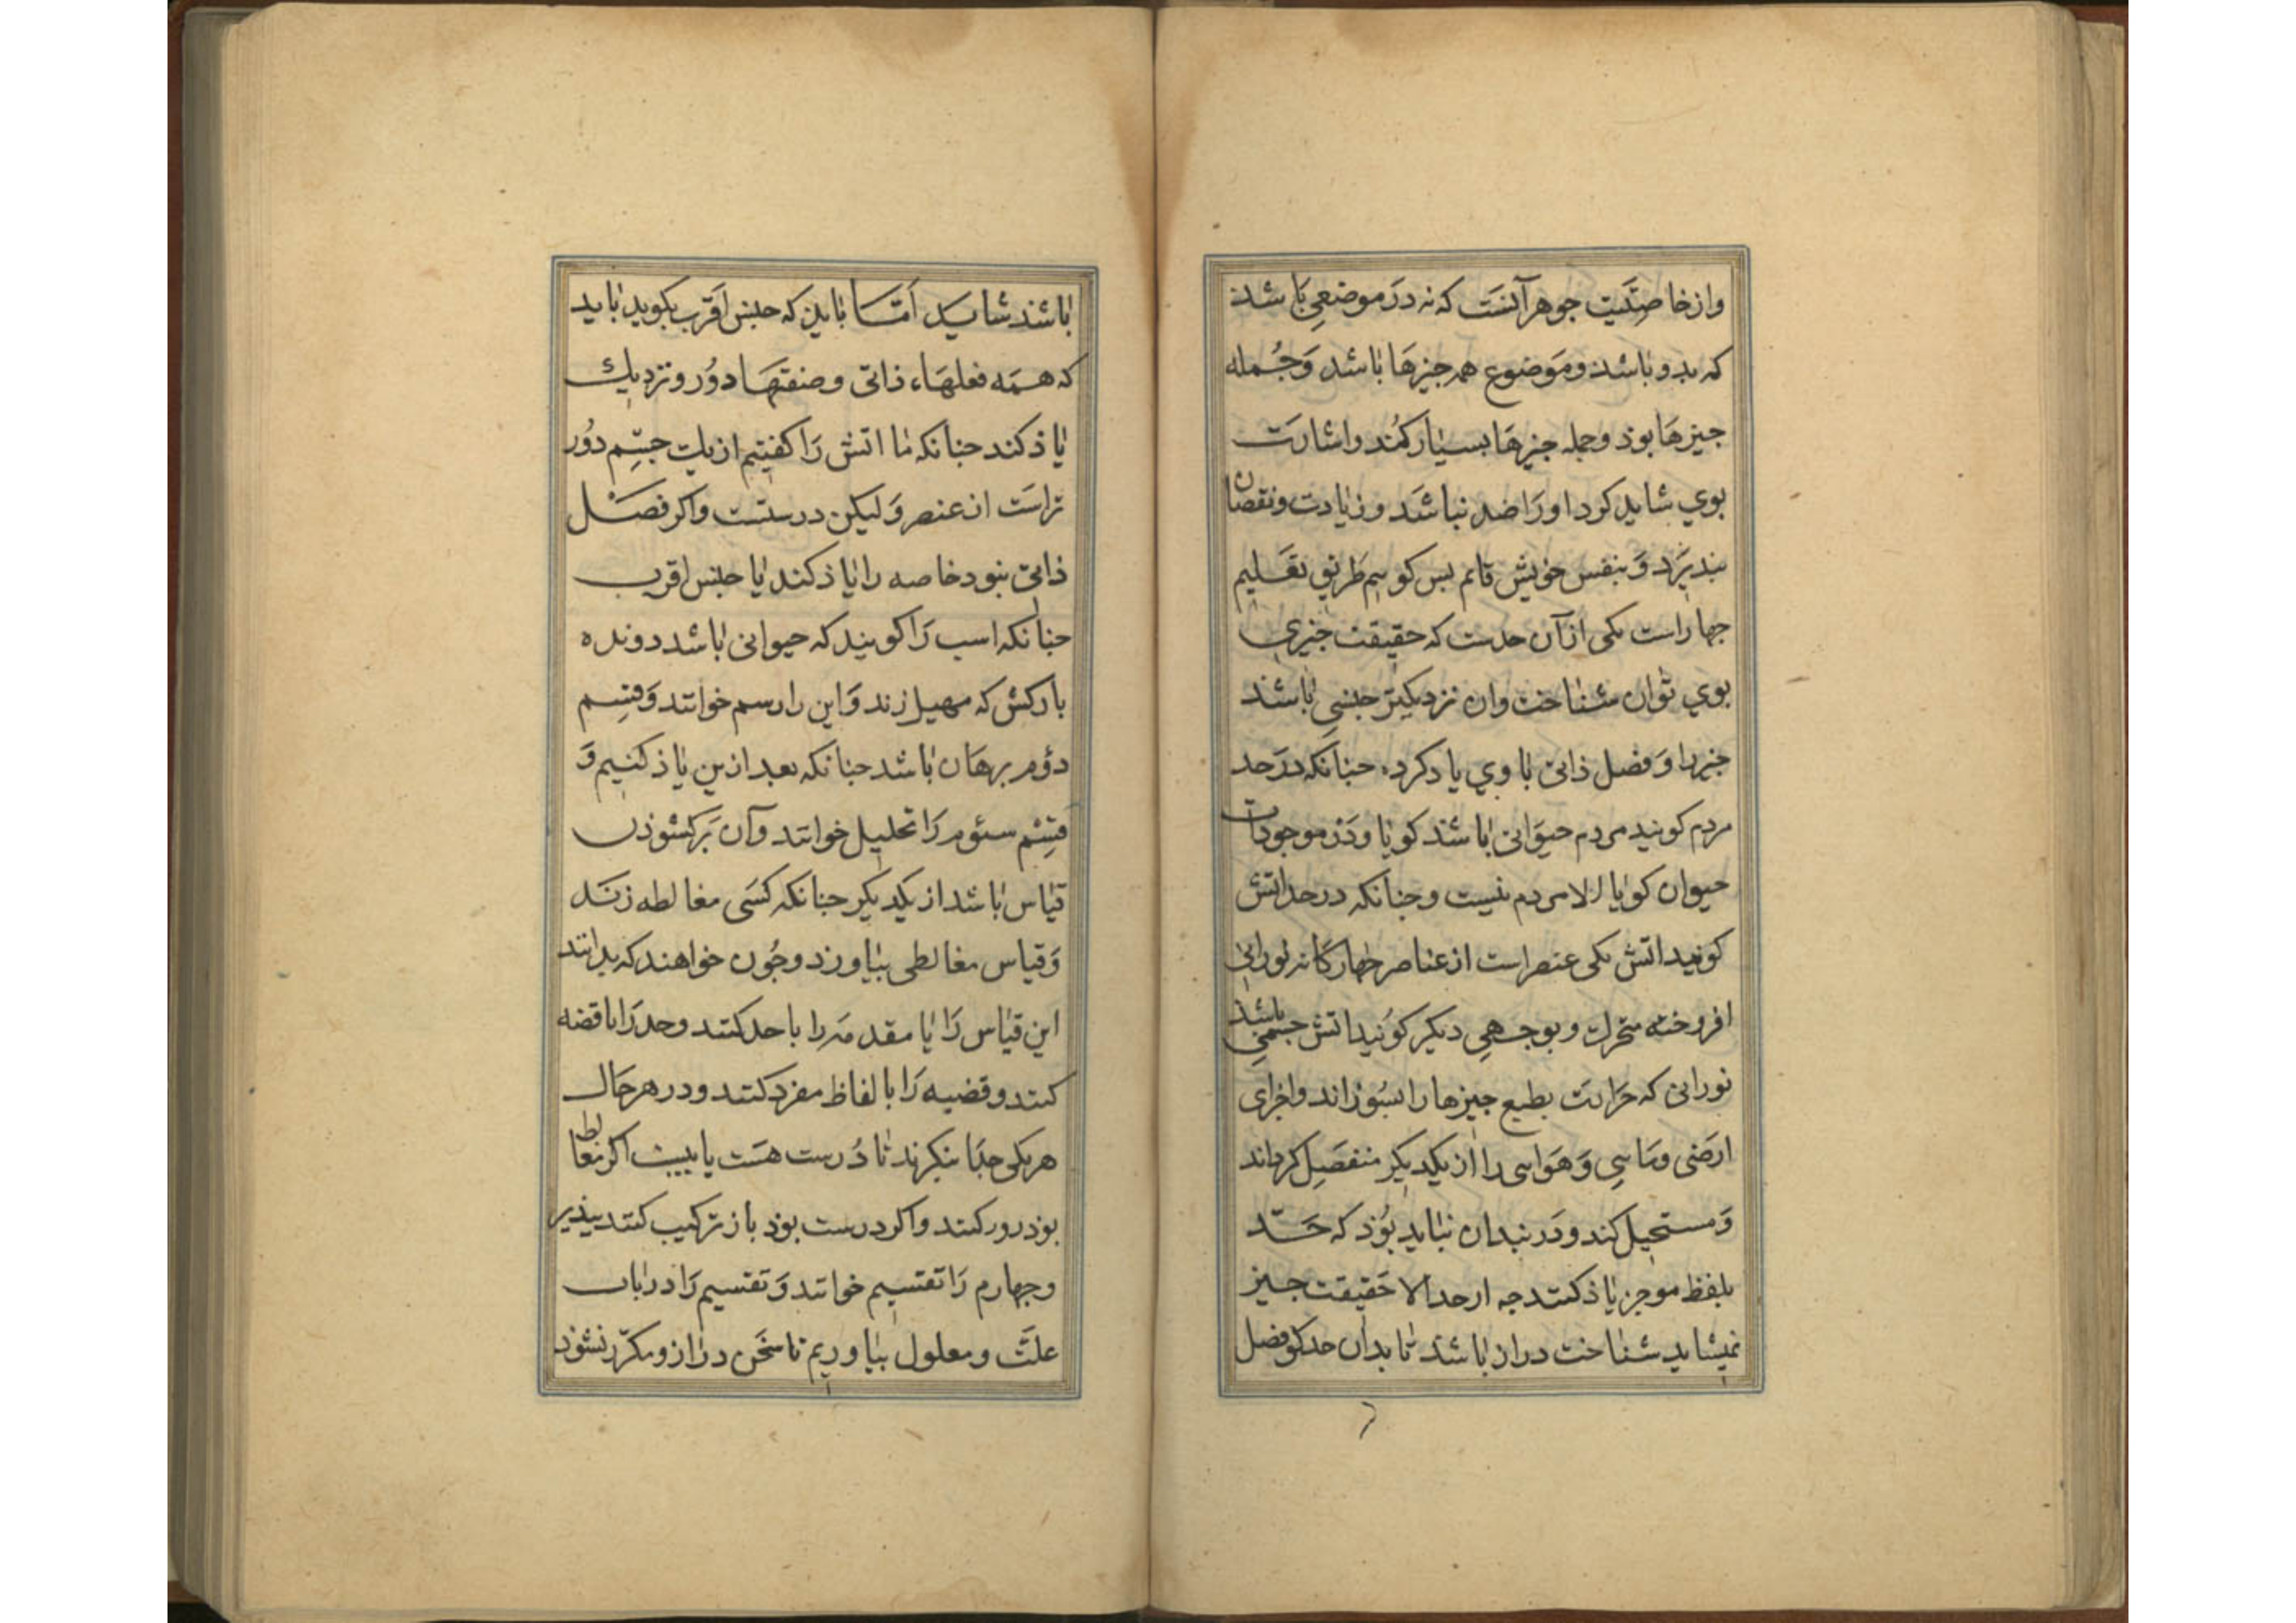 وازخاصتیت جوهر آنست که نه در موضعی باشد
که بدو باشد و موضوع همه جیزها باشد و جمله
جیزها بوذ و جمله جیزها بسیار کمند و اشارت
بوی شاید کرد او را ضد نباشد و زیادت و نقصان
نبدیرد و بنفس خویش قائم بس کوییم طریق تعلیم
جهار است یکی از آن حدست که حقیقت جیزی
بوی توان شناخت وان نزدیکتر جنسی باشد
جیزرا و فصل ذاتی با وی یاد کرد، جنانکه در حد
مردم کویند مردم حیوانی باشد کویا و در موجودات
حیوان کویا الا مردم نیست و جنانکه در حد اتش
کویند اتش یکی عنصر است از عناصر جهارکانه نورانی
افروخته متحرک و بوجهی دیکر کویند اتش جسمی باشد
نورانی که حرارت بطبع جیزها را بسوزاند و اجزای
ارضی و مایی و هوایی را از یکدیکر منفصل کرداند
و مستحیل کند و در بندان نباید بوذ که حد
بلفظ موجز یاذ کنند جه ار حد الا حقیقت جیز
نمیشاید شناخت دراز باشد تا بدان حد کو فصل
باشند شاید اما باین که جنس اقرب بکوید باید
که همه فعلهاء ذاتی و صفتها دور و نزدیک
یاذ کند جنانکه ما اتش را کفتیم ازیک جسم دور
تر است از عنصر و لیکن درستست و اکر فصل
ذاتی بنود خاصه را یاذ کند یا جنس اقرب
جنانکه اسب را کویند که حیوانی باشد دونده
بارکش که صهیل زند و این را رسم خوانند و قسم
دؤم برهان باشد جنانکه بعد ازین یاذ کنیم و
قسم سئوم را تحلیل خوانند و آن برکشوذن
قیاس باشد از یکدیکر جنانکه کسی مغالطه زند
و قیاس مغالطی بیاورد و جون خواهند که بدانند
این قیاس را یا مقدمه را با حد کنند و حد را با قضه
کنند و قضیه را با لفاظ مفرد کنند و در هر حال
هر یکی جدا بنکرند تا درست هست یا نیست اکر مغالط
بوذ رور کنند و اکر درست بوذ باز ترکیب کنند ببذیر
و جهارم را تقسیم خوانند و تقسیم را در باب
علت و معلول بیاوریم تا سخن دراز و مکرر نشوذ